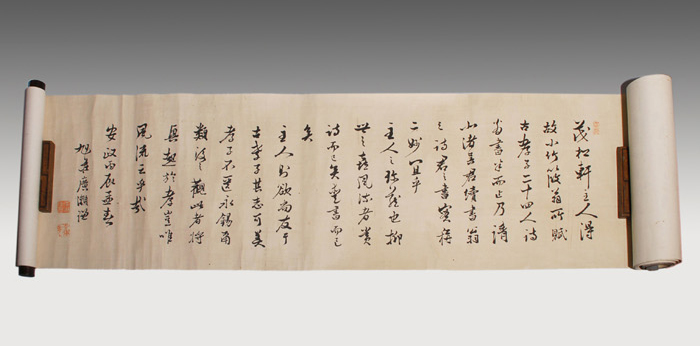 茂松軒主人得
故小竹筱翁所賦
古孝子二十四人詩
書半而止乃請
君續書翁
之詩君之書實稱
二妙宜乎
主人之珍藏也抑
世之喜風流者貴
詩而已矣重書而已
矣
主人則欲尚友于
古孝子其志可美
孝子不匱永錫爾
類後之觀此者將
興起於孝豈唯
風流云乎哉
安政丙辰孟春
旭莊廣瀬謙